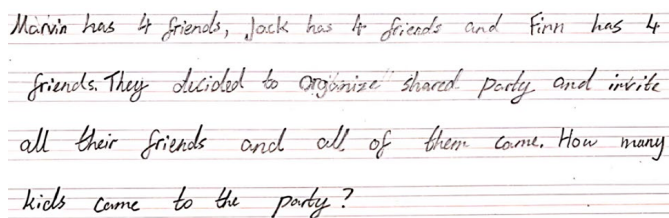 Marvin has 4 friends, Jack has 4 friends and Finn has 4
friends. They decided to organize shared party and invite
all their friends and all of them came. How many
kids came to the party?